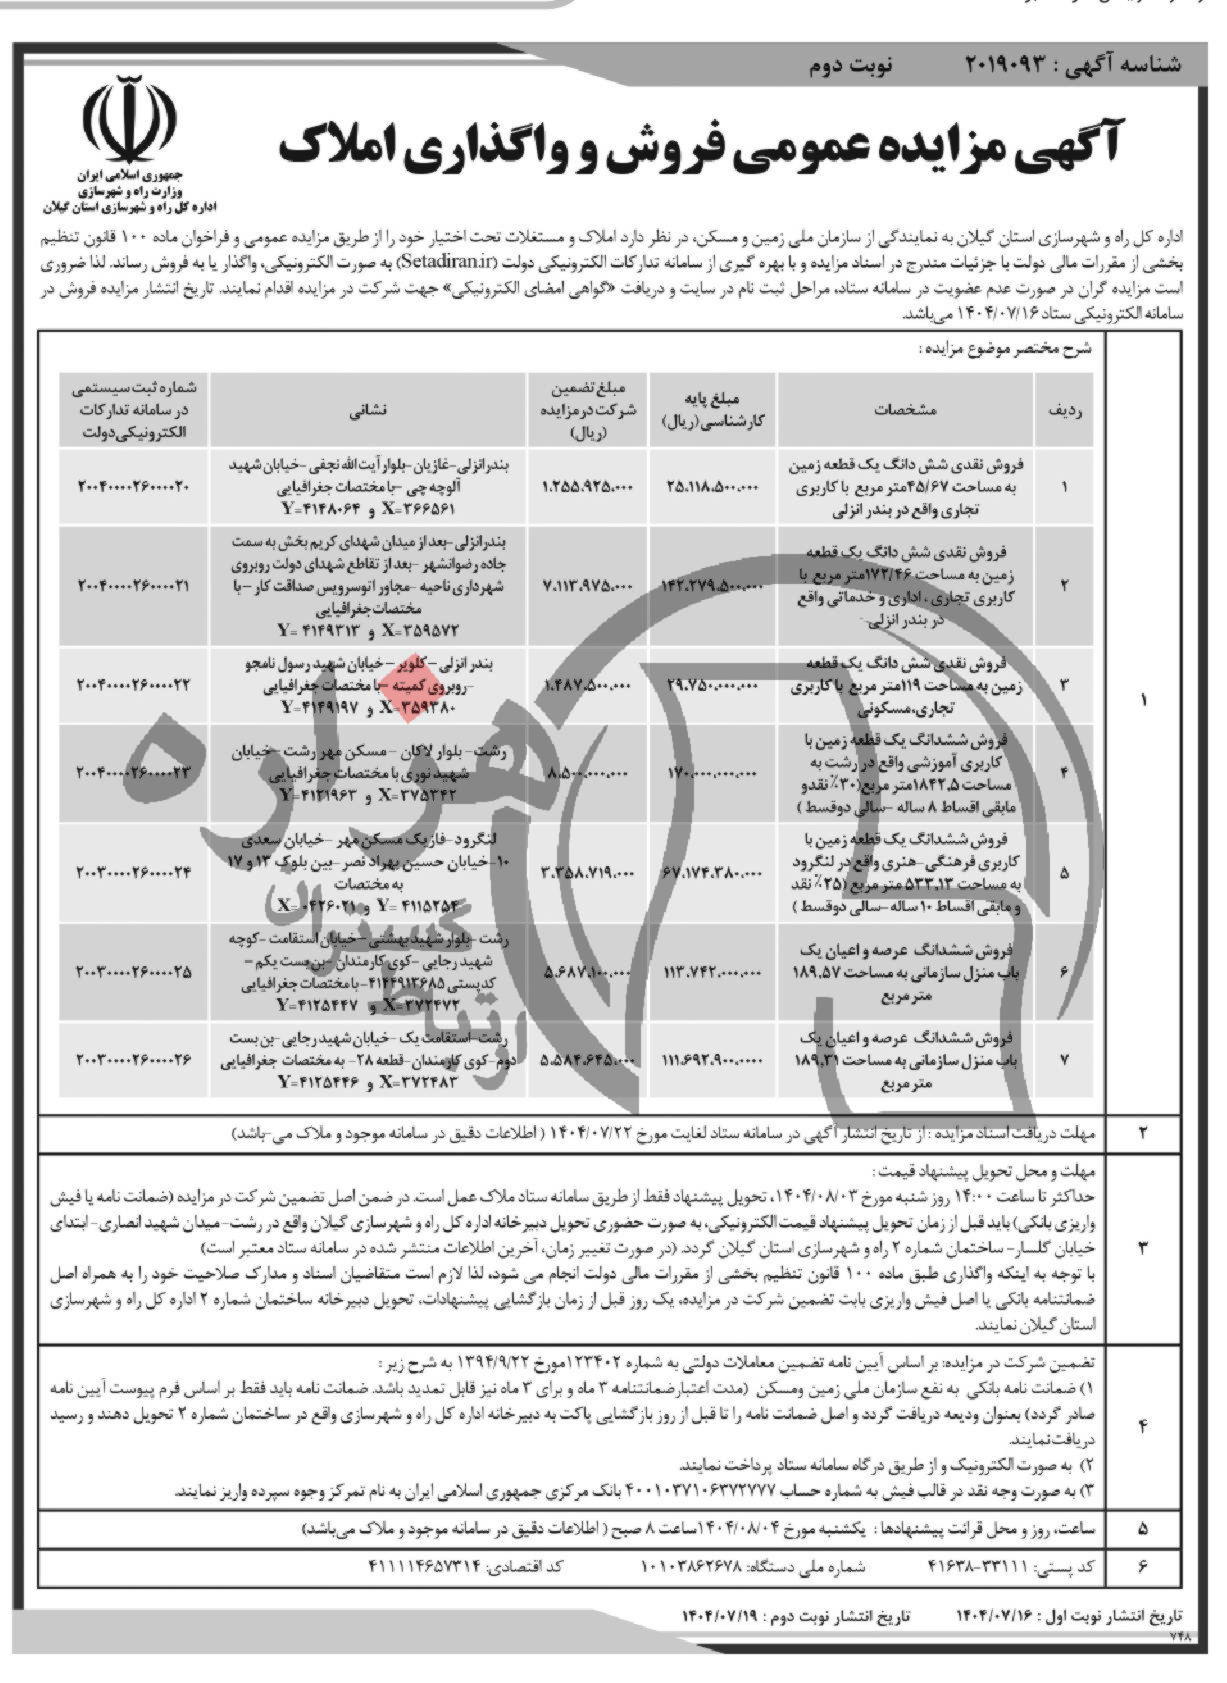 شناسه آگهی : ۲۰۱۹۰۹۳ نوبت دوم
آگهی مزایده عمومی فروش و واگذاری املاک
جمهوری اسلامی ایران
وزارت راه و شهرسازی
اداره کل راه و شهرسازی استان گیلان
اداره کل راه و شهرسازی استان گیلان به نمایندگی از سازمان ملی زمین و مسکن، در نظر دارد املاک و مستغلات تحت اختیار خود را از طریق مزایده عمومی و فراخوان ماده ۱۰۰ قانون تنظیم
بخشی از مقررات مالی دولت با جزئیات مندرج در اسناد مزایده و با بهره گیری از سامانه تدارکات الکترونیکی دولت (Setadiran.ir) به صورت الکترونیکی، واگذار یا به فروش رساند. لذا ضروری
است مزایده گران در صورت عدم عضویت در سامانه ستاد، مراحل ثبت نام در سایت و دریافت «گواهی امضای الکترونیکی» جهت شرکت در مزایده اقدام نمایند. تاریخ انتشار مزایده فروش در
سامانه الکترونیکی ستاد ۱۴۰۴/۰۷/۱۶ می‌باشد.
۱
شرح مختصر موضوع مزایده :
ردیف
مشخصات
مبلغ پایه
کارشناسی(ریال)
مبلغ تضمین
شرکت در مزایده
(ریال)
نشانی
شماره ثبت سیستمی
در سامانه تدارکات
الکترونیکی دولت
۱
فروش نقدی شش دانگ یک قطعه زمین
به مساحت ۴۵/۶۷متر مربع با کاربری
تجاری واقع در بندر انزلی
۲۵.۱۱۸.۵۰۰.۰۰۰
۱.۲۵۵.۹۲۵.۰۰۰
بندرانزلی-غازیان-بلوار آیت الله نجفی -خیابان شهید
آلوچه چی -با مختصات جغرافیایی
X=۳۶۶۵۶۱ و Y=۴۱۴۸۰۶۴
۲۰۰۴۰۰۰۰۲۶۰۰۰۰۲۰
۲
فروش نقدی شش دانگ یک قطعه
زمین به مساحت ۱۷۲/۴۶متر مربع با
کاربری تجاری ، اداری و خدماتی واقع
در بندر انزلی-
۱۴۲.۲۷۹.۵۰۰.۰۰۰
۷.۱۱۳.۹۷۵.۰۰۰
بندرانزلی-بعد از میدان شهدای کریم بخش به سمت
جاده رضوانشهر -بعد از تقاطع شهدای دولت روبروی
شهرداری ناحیه -مجاور اتوسرویس صداقت کار -با
مختصات جغرافیایی
X=۳۵۹۵۷۲ و Y= ۴۱۴۹۳۱۳
۲۰۰۴۰۰۰۰۲۶۰۰۰۰۲۱
۳
فروش نقدی شش دانگ یک قطعه
زمین به مساحت ۱۱۹متر مربع با کاربری
تجاری،مسکونی
۲۹.۷۵۰.۰۰۰.۰۰۰
۱.۴۸۷.۵۰۰.۰۰۰
بندر انزلی -کلویر - خیابان شهید رسول نامجو
-روبروی کمیته -با مختصات جغرافیایی
X=۳۵۹۳۸۰ و Y=۴۱۴۹۱۹۷
۲۰۰۴۰۰۰۰۲۶۰۰۰۰۲۲
۴
فروش ششدانگ یک قطعه زمین با
کاربری آموزشی واقع در رشت به
مساحت ۱۸۴۲.۵متر مربع(۳۰٪ نقدو
مابقی اقساط ۸ ساله -سالی دوقسط )
۱۷۰.۰۰۰.۰۰۰.۰۰۰
۸.۵۰۰.۰۰۰.۰۰۰
رشت- بلوار لاکان - مسکن مهر رشت -خیابان
شهید نوری با مختصات جغرافیایی
X=۳۷۵۳۴۲ و Y=۴۱۲۱۹۶۳
۲۰۰۴۰۰۰۰۲۶۰۰۰۰۲۳
۵
فروش ششدانگ یک قطعه زمین با
کاربری فرهنگی-هنری واقع در لنگرود
به مساحت ۵۳۳.۱۳ متر مربع (۲۵٪ نقد
و مابقی اقساط ۱۰ساله -سالی دوقسط )
۶۷.۱۷۴.۳۸۰.۰۰۰
۳.۳۵۸.۷۱۹.۰۰۰
لنگرود -فاز یک مسکن مهر -خیابان سعدی
۱۰-خیابان حسین بهراد نصر -بین بلوک ۱۳ و ۱۷
به مختصات
Y= ۴۱۱۵۲۵۴ و X=۰۴۲۶۰۲۱
۲۰۰۳۰۰۰۰۲۶۰۰۰۰۲۴
۶
فروش ششدانگ عرصه و اعیان یک
باب منزل سازمانی به مساحت ۱۸۹.۵۷
متر مربع
۱۱۳.۷۴۲.۰۰۰.۰۰۰
۵.۶۸۷.۱۰۰.۰۰۰
رشت -بلوار شهید بهشتی -خیابان استقامت -کوچه
شهید رجایی -کوی کارمندان -بن بست یکم -
کدپستی ۴۱۴۴۹۱۳۶۸۵-با مختصات جغرافیایی
X=۳۷۲۴۷۲ و Y=۴۱۲۵۴۴۷
۲۰۰۳۰۰۰۰۲۶۰۰۰۰۲۵
۷
فروش ششدانگ عرصه و اعیان یک
باب منزل سازمانی به مساحت ۱۸۹.۳۱
متر مربع
۱۱۱.۶۹۲.۹۰۰.۰۰۰۰
۵.۵۸۴.۶۴۵.۰۰۰
رشت-استقامت یک -خیابان شهید رجایی -بن بست
دوم-کوی کارمندان-قطعه ۲۸- به مختصات جغرافیایی
X=۳۷۲۴۸۳ و Y=۴۱۲۵۴۴۶
۲۰۰۳۰۰۰۰۲۶۰۰۰۰۲۶
هزاره
گستران
ارتباط
۲ مهلت دریافت اسناد مزایده : از تاریخ انتشار آگهی در سامانه ستاد لغایت مورخ ۱۴۰۴/۰۷/۲۲ ( اطلاعات دقیق در سامانه موجود و ملاک می-باشد)
۳
مهلت و محل تحویل پیشنهاد قیمت :
حداکثر تا ساعت ۱۴:۰۰ روز شنبه مورخ ۱۴۰۴/۰۸/۰۳، تحویل پیشنهاد فقط از طریق سامانه ستاد ملاک عمل است. در ضمن اصل تضمین شرکت در مزایده (ضمانت نامه یا فیش
واریزی بانکی) باید قبل از زمان تحویل پیشنهاد قیمت الکترونیکی، به صورت حضوری تحویل دبیرخانه اداره کل راه و شهرسازی گیلان واقع در رشت- میدان شهید انصاری- ابتدای
خیابان گلسار- ساختمان شماره ۲ راه و شهرسازی استان گیلان گردد. (در صورت تغییر زمان، آخرین اطلاعات منتشر شده در سامانه ستاد معتبر است)
با توجه به اینکه واگذاری طبق ماده ۱۰۰ قانون تنظیم بخشی از مقررات مالی دولت انجام می شود، لذا لازم است متقاضیان اسناد و مدارک صلاحیت خود را به همراه اصل
ضمانتنامه بانکی یا اصل فیش واریزی بابت تضمین شرکت در مزایده، یک روز قبل از زمان بازگشایی پیشنهادات، تحویل دبیرخانه ساختمان شماره ۲ اداره کل راه و شهرسازی
استان گیلان نمایند.
۴
تضمین شرکت در مزایده: بر اساس آیین نامه تضمین معاملات دولتی به شماره ۱۲۳۴۰۲مورخ ۱۳۹۴/۹/۲۲ به شرح زیر :
۱) ضمانت نامه بانکی به نفع سازمان ملی زمین ومسکن (مدت اعتبارضمانتنامه ۳ ماه و برای ۳ ماه نیز قابل تمدید باشد. ضمانت نامه باید فقط بر اساس فرم پیوست آیین نامه
صادر گردد) بعنوان ودیعه دریافت گردد و اصل ضمانت نامه را تا قبل از روز بازگشایی پاکت به دبیرخانه اداره کل راه و شهرسازی واقع در ساختمان شماره ۲ تحویل دهند و رسید
دریافت نمایند.
۲) به صورت الکترونیک و از طریق درگاه سامانه ستاد پرداخت نمایند.
۳) به صورت وجه نقد در قالب فیش به شماره حساب ۴۰۰۱۰۳۷۱۰۶۳۷۲۷۷۷ بانک مرکزی جمهوری اسلامی ایران به نام تمرکز وجوه سپرده واریز نمایند.
۵ ساعت، روز و محل قرائت پیشنهادها : یکشنبه مورخ ۱۴۰۴/۰۸/۰۴ساعت ۸ صبح ( اطلاعات دقیق در سامانه موجود و ملاک می‌باشد)
۶ کد پستی: ۳۳۱۱۱-۴۱۶۳۸ شماره ملی دستگاه: ۱۰۱۰۳۸۶۲۶۷۸ کد اقتصادی: ۴۱۱۱۱۴۶۵۷۳۱۴
تاریخ انتشار نوبت اول : ۱۴۰۴/۰۷/۱۶ تاریخ انتشار نوبت دوم : ۱۴۰۴/۰۷/۱۹
۷۴۸